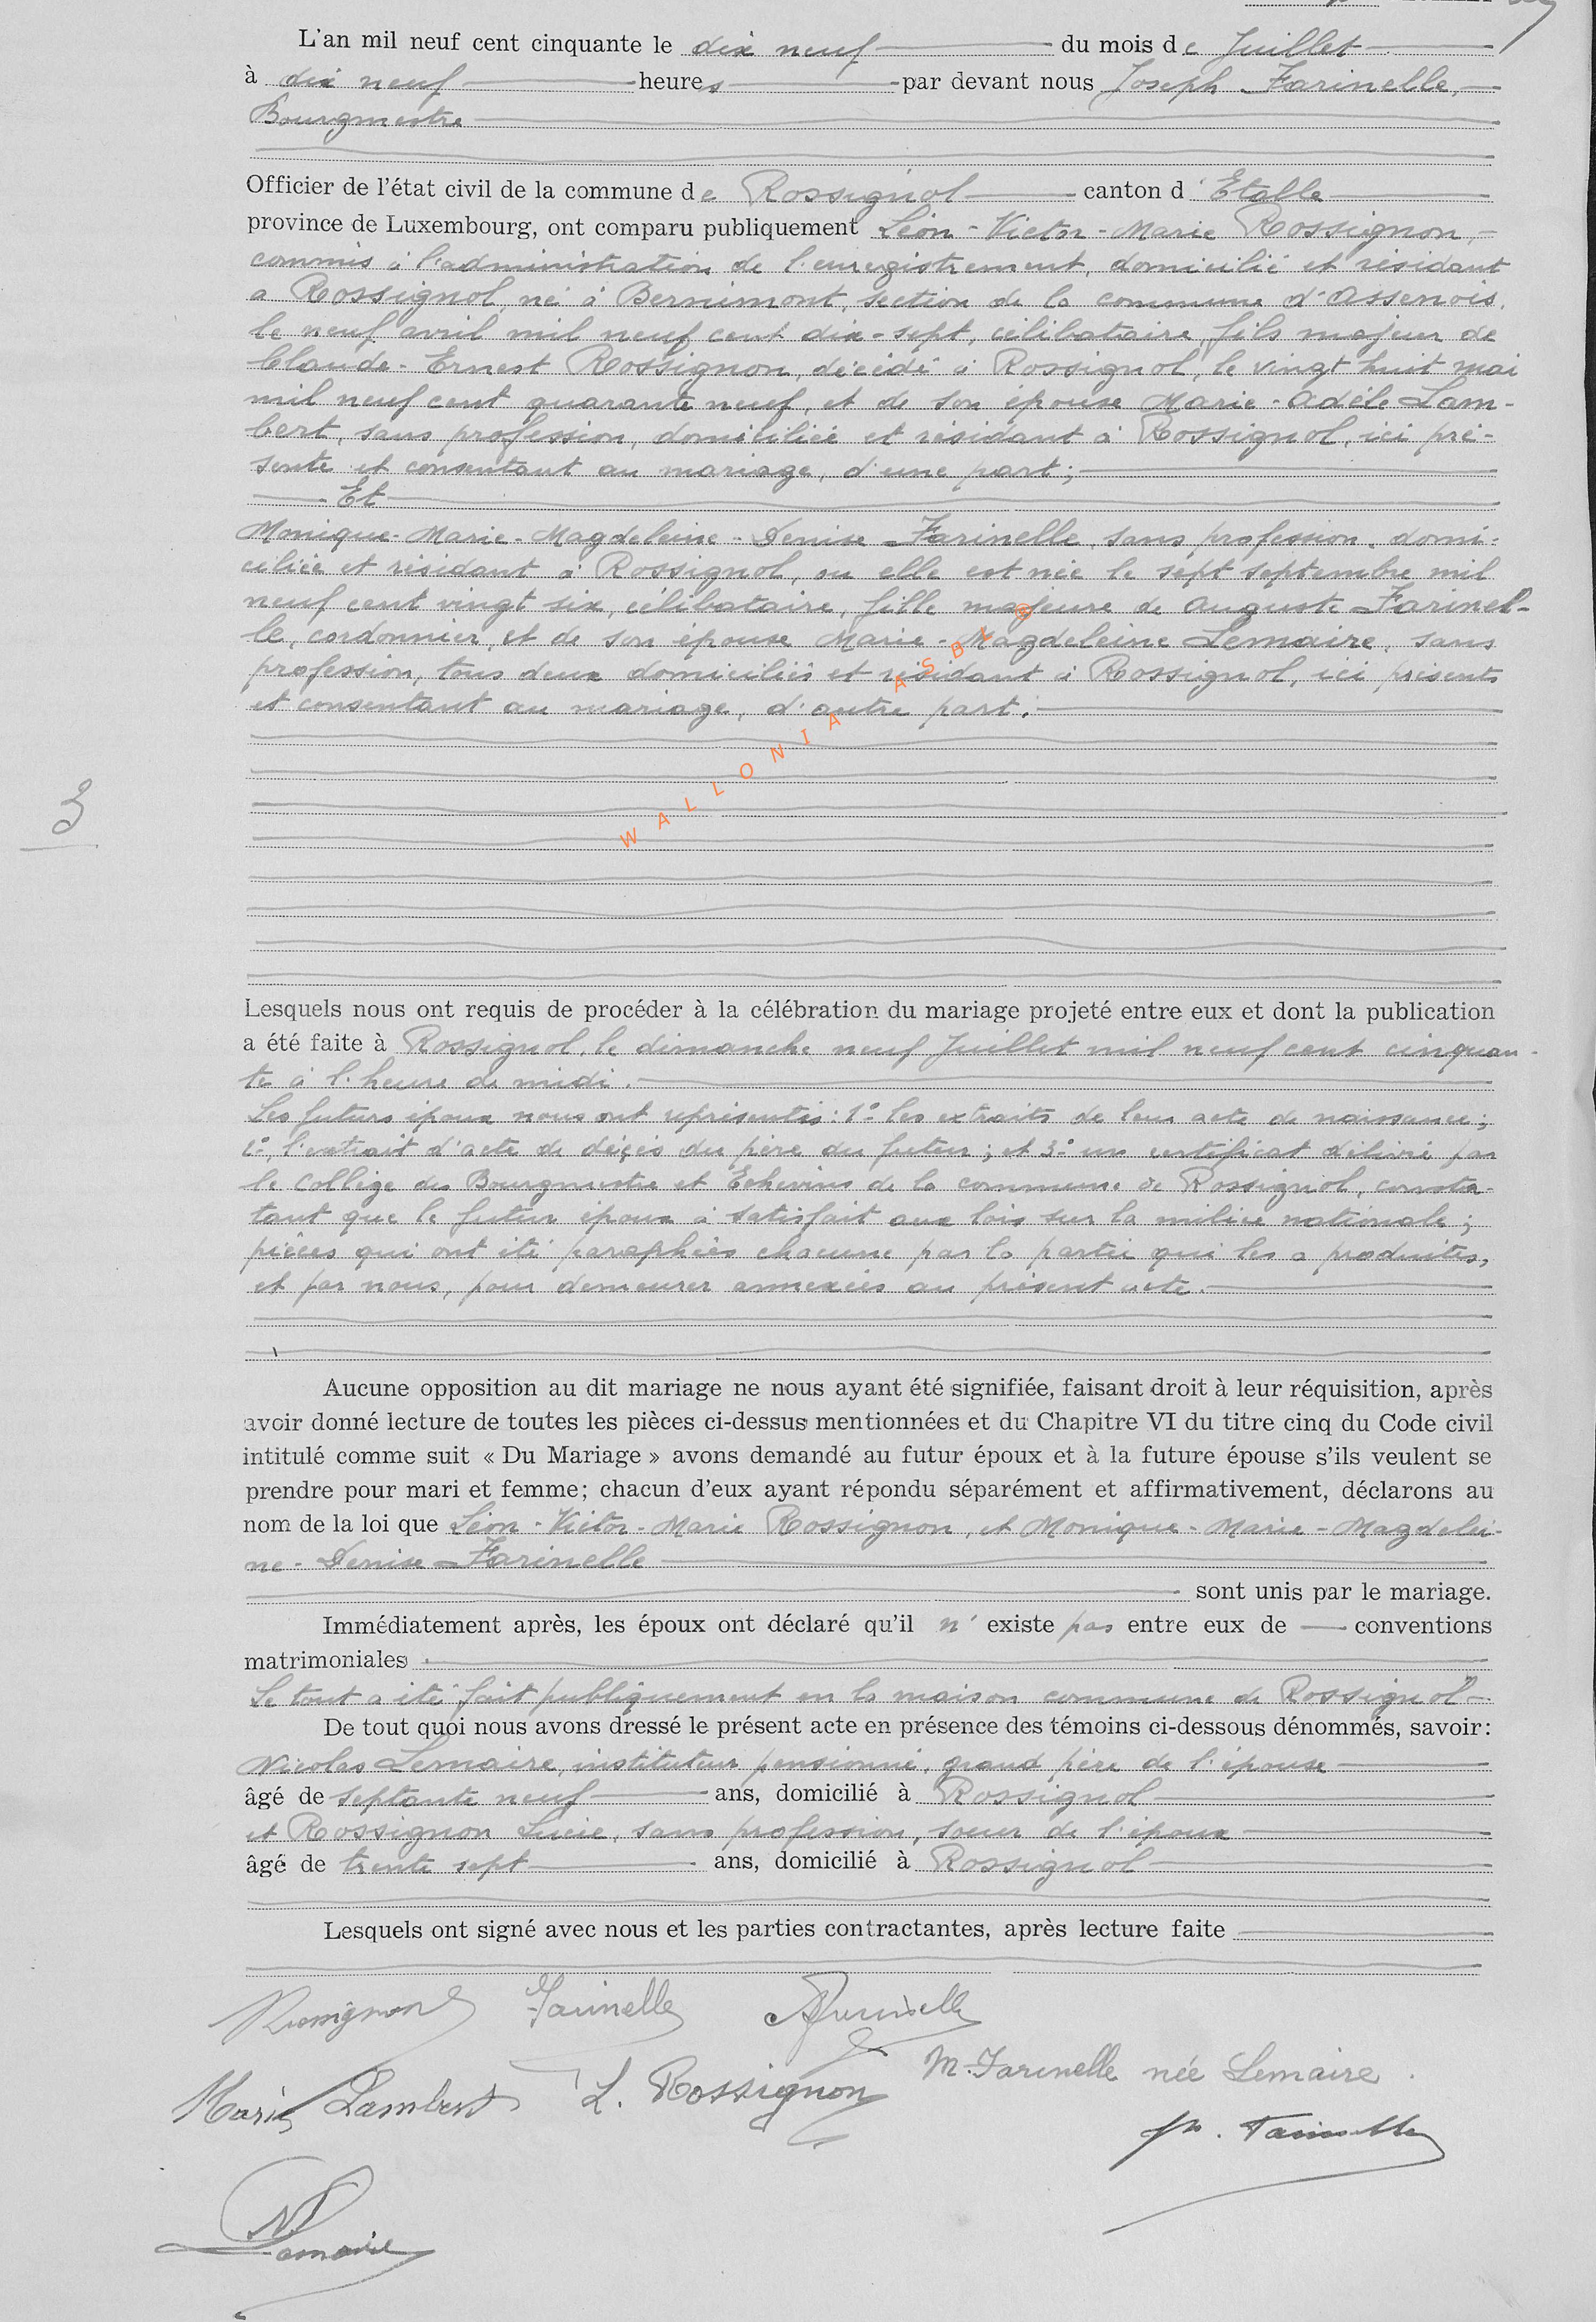 L'an mil neuf cent cinquante le dix neuf du mois de Juillet
à dix neuf heures par devant nous Joseph Farinelle,
Bourgmestre
Officier de l'état civil de la commune de Rossignol canton d'Etalle
province de Luxembourg, ont comparu publiquement Léon-Victor-Marie Rossignon,
commis à l'administration de l'enregistrement, domicilié et résidant
a Rossignol, né à Bernimont, section de la commune d'Assenois,
le neuf avril mil neuf cent dix-sept, célibataire, fils majeur de
Claude-Ernest Rossignon, décédé à Rossignol, le vingt huit mai
mil neuf cent quarante neuf, et de son épouse Marie-Adèle Lam-
bert, sans profession, domiciliée et résidant à Rossignol, ici pré-
sente et consentant au mariage, d'une part;
Et
Monique-Marie-Magdeleine-Denise Farinelle, sans profession, domi-
ciliée et résidant à Rossignol, ou elle est née le sept septembre mil
neuf cent vingt six, célibataire, fille majeure de Auguste Farinel-
le, cordonnier, et de son épouse Marie-Magdeleine Lemaire, sans
profession, tous deux domiciliés et résidant à Rossignol, ici présents
et consentant au mariage, d'autre part.
WALLONIA ASBL ©
3
Lesquels nous ont requis de procéder à la célébration du mariage projeté entre eux et dont la publication
a été faite à Rossignol, le dimanche neuf Juillet mil neuf cent cinquan-
te à l'heure de midi.
Les futurs époux nous ont représentés: 1° les extraits de leur acte de naissance;
2°, l'extrait d'acte de décès du père du futur; et 3° un certificat délivré par
le Collège des Bourgmestre et Echevins de la commune de Rossignol, consta-
tant que le futur époux à satisfait aux lois sur la milice nationale;
pièces qui ont été paraphées chacune par la partie qui les a produites,
et par nous, pour demeurer annexées au présent acte.
Aucune opposition au dit mariage ne nous ayant été signifiée, faisant droit à leur réquisition, après
avoir donné lecture de toutes les pièces ci-dessus mentionnées et du Chapitre VI du titre cinq du Code civil
intitulé comme suit « Du Mariage » avons demandé au futur époux et à la future épouse s'ils veulent se
prendre pour mari et femme; chacun d'eux ayant répondu séparément et affirmativement, déclarons au
nom de la loi que Léon-Victor-Marie Rossignon, et Monique-Marie-Magdelei-
ne-Denise Farinelle
sont unis par le mariage.
Immédiatement après, les époux ont déclaré qu'il n'existe pas entre eux de conventions
matrimoniales.
Le tout a été fait publiquement en la maison commune de Rossignol
De tout quoi nous avons dressé le présent acte en présence des témoins ci-dessous dénommés, savoir:
Nicolas Lemaire, instituteur pensionné, grand père de l'épouse
âgé de septante neuf ans, domicilié à Rossignol
et Rossignon Lucie, sans profession, soeur de l'époux
âgé de trente sept ans, domicilié à Rossignol
Lesquels ont signé avec nous et les parties contractantes, après lecture faite
Rossignon Farinelle A Farinelle
M. Farinelle née Lemaire.
Marie Lambert L. Rossignon
Jh. Farinelle
N Lemaire